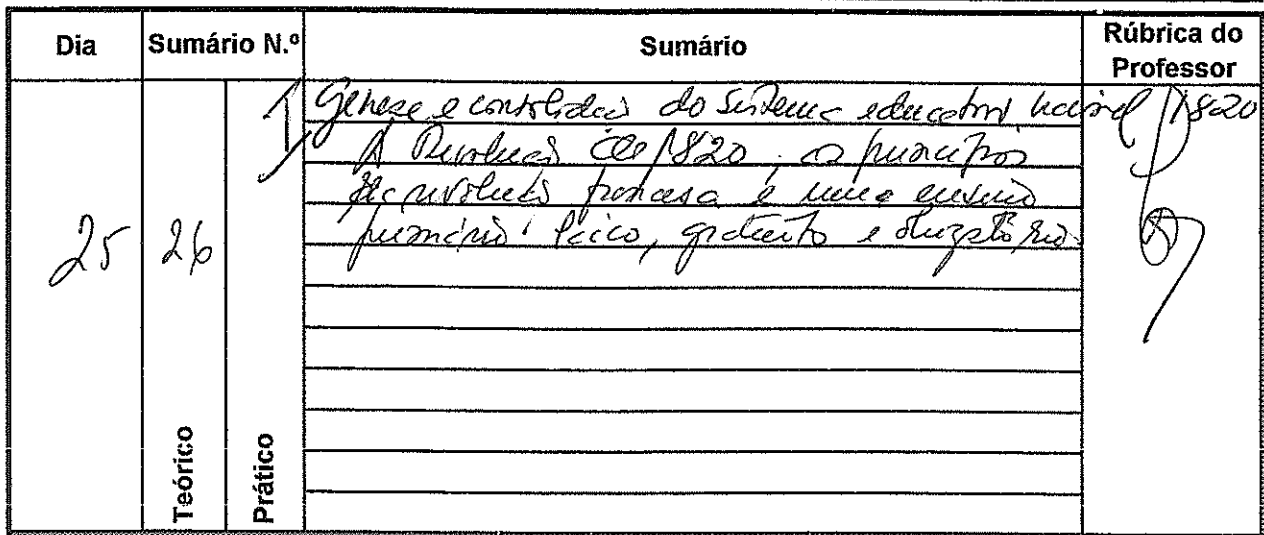 Dia Sumário N.º Sumário Rúbrica do Professor
Génese e consolidação do Sistema educativo nacional 1820
A Revolução de 1820. os princípios
da revolução francesa e uma ensino
primário laico, gratuito e obrigatório
25 26
Teórico Prático